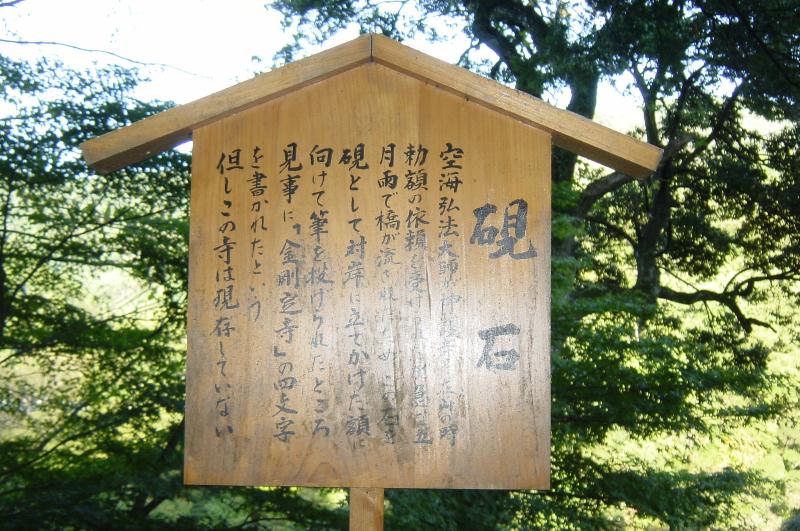 硯石
空海弘法大師が神護寺に
勅額の依頼を受け 急な五
月雨で橋が流された為 この石を
硯として対岸に立てかけた額に
向けて筆を投げられたところ
見事に「金剛定寺」の四文字
を書かれたという
但しこの寺は現存していない